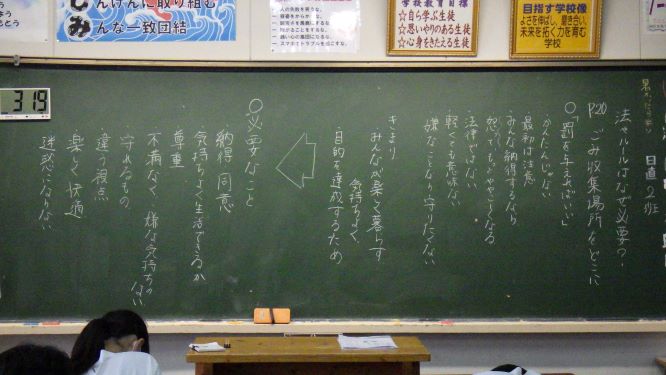 んけんに取り組む
しみんな一致団結
学校教育目標
☆自ら学ぶ生徒
☆思いやりのある生徒
☆心身をきたえる生徒
目指す学校像
よさを伸ばし、磨き合い、
未来を拓く力を育む
学校
319
日直2班
法やルールはなぜ必要？
P20 ごみ収集場所をどこに
○「罰を与えればいい」
かんたんじゃない
最初は注意
みんな納得するなら
怒ってもややこしくなる
法律ではない
軽くても意味ない
嫌なことなり守りたくない
きまり
みんなが楽く暮らす
気持ちよく
目的を達成するため
○必要なこと
納得 同意
気持ちよく生活できるか
尊重
不満なく 嫌な気持ちのない
守れるもの
違う視点
楽しく快適
迷惑にならない